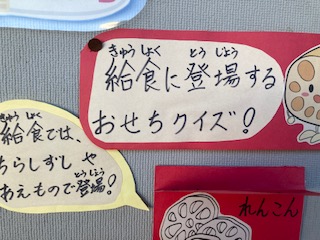 きゅう しょく とう じょう
給食に登場する
おせちクイズ!
きゅう しょく
給食では、
ちらしずし や
とうじょう
あえもので登場!
れんこん